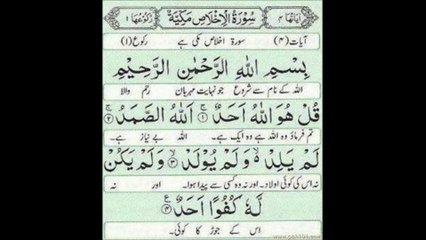 اٰیَاتُهَا ۴ سُوْرَةُ الْاِخْلَاصِ مَكِّيَّةٌ رُكُوْعُهَا ۱
آیات (۴) سورۃ اخلاص مکی ہے رکوع (۱)
بِسْمِ اللهِ الرَّحْمٰنِ الرَّحِيْمِ
اللہ کے نام سے شروع جو نہایت مہربان رحم والا
قُلْ هُوَ اللهُ اَحَدٌ ۚ﴿۱﴾ اَللهُ الصَّمَدُ ۚ﴿۲﴾
تم فرماؤ وہ اللہ ہے وہ ایک ہے۔ اللہ بے نیاز ہے۔
لَمْ يَلِدْ ۙ وَلَمْ يُوْلَدْ ۙ﴿۳﴾ وَلَمْ يَكُنْ
نہ اس کی کوئی اولاد۔ اور نہ وہ کسی سے پیدا ہوا۔ اور نہ
لَّهٗ كُفُوًا اَحَدٌ ﴿۴﴾
اس کے جوڑ کا کوئی۔